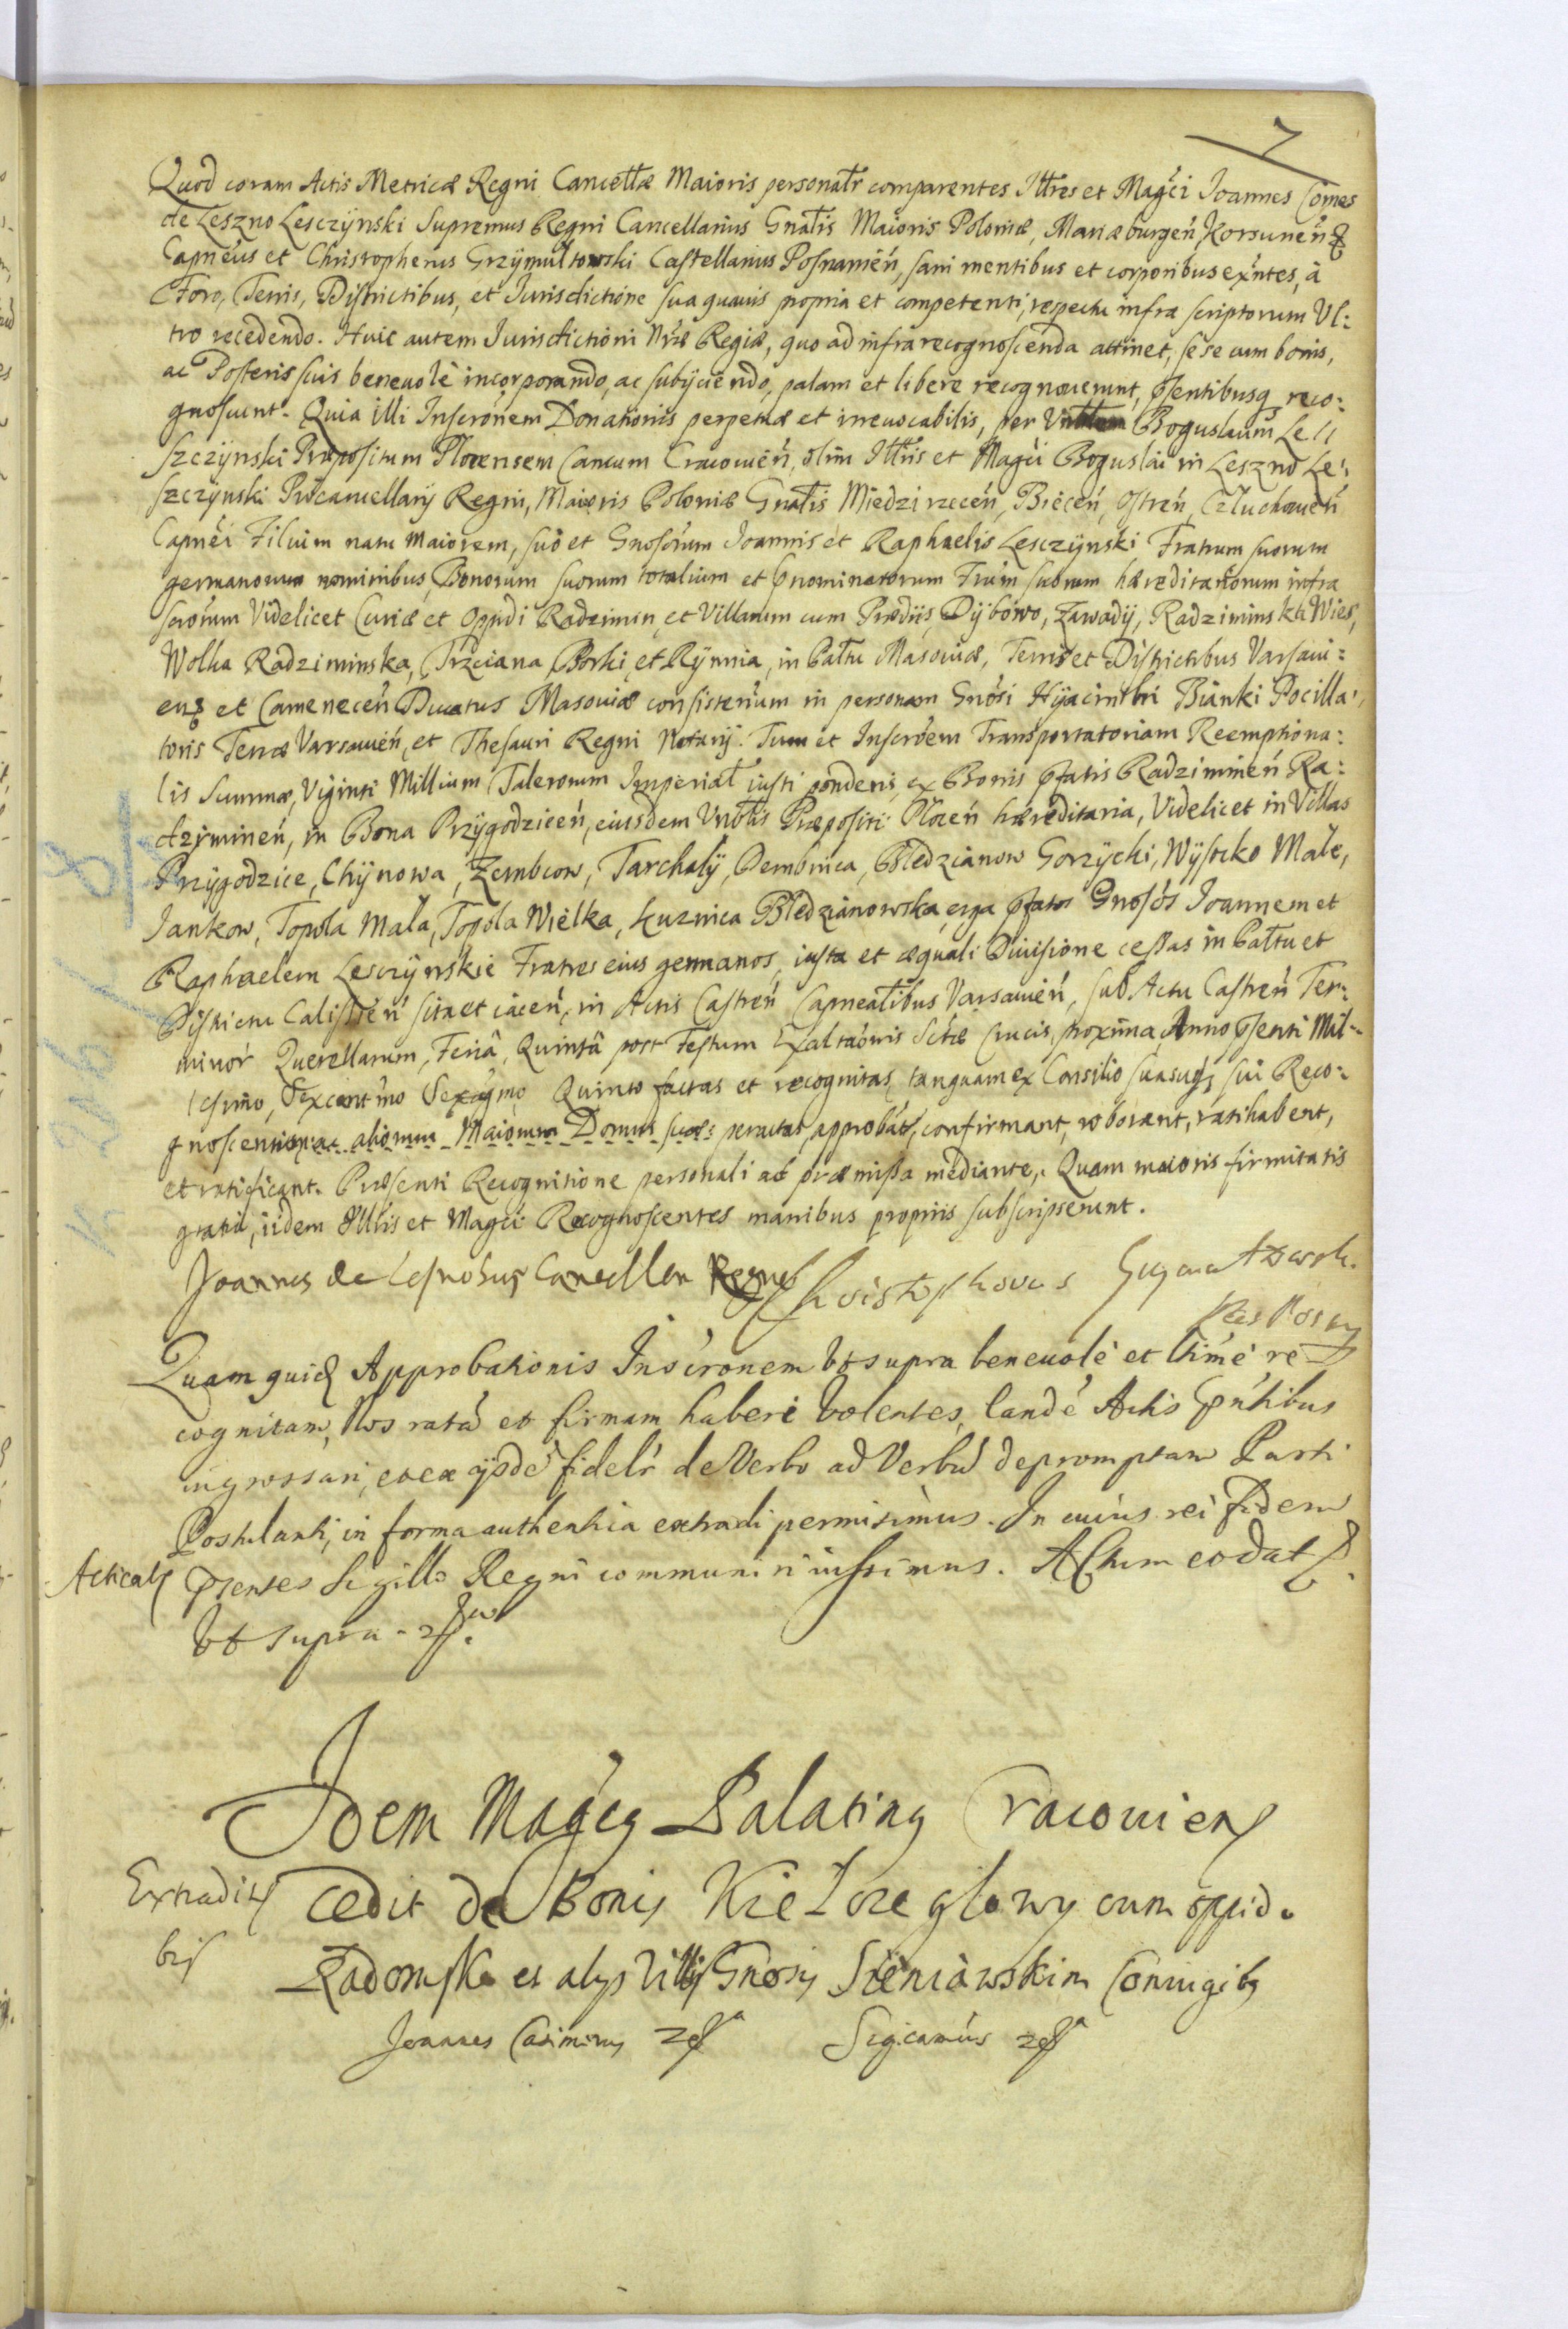 7
Quod coram Actis Metricæ Regni Cancellæ Maioris personalr comparentes Illres et Magci Joannes Comes
de Leszno Lesczÿnski Supremus Regni Cancellarius Gnalis Maioris Poloniæ, Mariæburgen Korsunen
Capneus et Christopherus Grzÿmultowski Castellanus Posnanien, sani mentibus et corporibus exntes, à
Foro, Terris, Districtibus, et Jurisdictione sua quauis propria et competenti, respectu infra scriptorum Vl:
tro recedendo. Huic autem Jurisdictioni Nræ Regiæ, quo ad infra recognoscenda attinet, se se cum bonis,
ac Posteris suis beneuolè incorporando, ac subÿciendo, palam et libere recognouerunt, psentibusq reco:
gnoscunt. Quia illi Inscronem Donationis perpetuæ et irreuocabilis, per Boguslaum Le
szczÿnski Præpositum Plocensem Cancum Cracouien, olim Illris et Magci Boguslai in Leszno Le:
szczÿnski Procancellarÿ Regni, Maioris Poloniæ Gnalis Miedzirzecen, Biecen, Ostren, Czluchouen
Capnei Filium natu maiorem, suo et Gnosorum Joannis et Raphaelis Lesczÿnski Fratrum suorum
germanorum nominibus, Bonorum suorum totalium et pnominatorum Frum suorum hæreditariorum infra
scrorum Videlicet Curiæ et Oppidi Radzimin, et Villarum cum Prædiis, Dÿbowo, Zawadÿ, Radziminska Wies,
Wolka Radziminska, Trzciana Borki, et Rÿnnia, in Paltu Masouiæ, Terris et Districtibus Varsaui:
en et Camenecen Ducatus Masouiæ consistentium in personam Gnosi Hÿacinthi Bianki Pocilla:
toris Terræ Varsauien, et Thesauri Regni Notarÿ. Tum et Inscroem Transportatoriam Reemptiona:
lis Summæ, Viginti Millium Talerorum Imperial iusti ponderis, ex Bonis pfatis Radziminen Ra:
dziminen, in Bona Przÿgodzicen, eiusdem Vnblis Præpositi Plocen hæreditaria, Videlicet in Villas
Przÿgodzice, Chÿnowa, Zembcow, Tarchalÿ, Dembnica, Bledzianow Gorzÿcki, Wÿsocko Male,
Jankow, Topola Mala, Topola Wielka, Kuznica Bledzianowska, erga pfatos Gnosos Joannem et
Raphaelem Lesczÿnskie Fratres eius germanos, iusta et æquali Diuisione cessas in Paltu et
Districtu Calissien sita et iacen, in Actis Castren Capnealibus Varsauien, sub Actu Castren Ter:
minor Querellarum, Feriâ Quintâ post Festum Exaltaonis Sctæ Crucis, proxima, Anno psenti Mil:
lesimo, Sexcentmo Sexagmo Quinto factas et recognitas, tanquam ex Consilio suasuq sui Reco:
gnoscentium ac aliorum Maiorum Domus suæ peractas, approbat, confirmant, roborant, ratihabent,
et ratificant. Præsenti Recognitione personali ad præmissa mediante. Quam maioris firmitatis
gratia, iidem Illris et Magci Recognoscentes manibus propriis subscripserunt.
Joannes de Lesno Cancellar Regni Christophorus
Posn
Quam quid Approbationis Inscronem vt supra beneuolè et ltimè re
cognitam, Nos ratã et firmam haberi Volentes, eandē Actis pntibus
ingrossari, et ex ijsdē fidelr de Verbo ad Verbū depromptam Parti
Postulanti, in forma authentica extradi permisimus. In cuius rei fidem
Acticat psentes Sigillo Regni communiri iussimus. Actum et dat
vt supra.
Idem Magcus Palatinus Cracouien
Extradit cedit de Bonis Kietore glowy cum oppido
bis
Radomsko et alys Villis Gnosis Sieniawskim Coniugibus
Joannes Casimirus